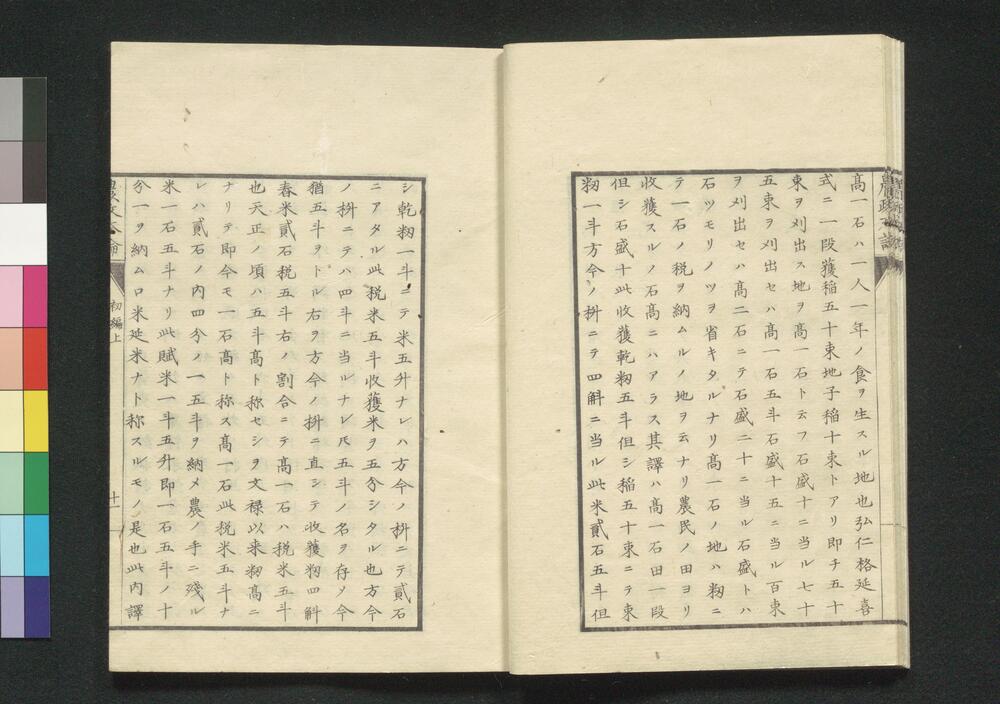 高一石ハ一人一年ノ食ヲ生スル地也弘仁格延喜
式ニ一段獲稲五十束地子稲十束トアリ即チ五十
束ヲ刈出ス地ヲ高一石ト云フ石盛十ニ当ル七十
五束ヲ刈出セハ高一石五斗石盛十五ニ当ル百束
ヲ刈出セハ高二石ニテ石盛二十ニ当ル石盛トハ
石ツモリノツヲ省キタルナリ高一石ノ地ハ籾ニ
テ一石ノ税ヲ納ムルノ地ヲ云ナリ農民ノ田ヨリ
収獲スルノ石高ニハアラス其譯ハ高一石田一段
但シ石盛十此収獲乾籾五斗但シ稲五十束ニテ束
籾一斗方今ノ枡ニテ四斛ニ当ル此米貳石五斗但
シ乾籾一斗ニテ米五升ナレハ方今ノ枡ニテ貳石
ニアタル此税米五斗收獲米ヲ五分シタル也方今
ノ枡ニテハ四斗ニ当ルナレ𪜈五斗ノ名ヲ存ソ今
猶五斗ヲトル右ヲ方今ノ枡ニ直シテ收獲籾四斛
舂米貳石税五斗右ノ割合ニテ高一石ハ税米五斗
也天正ノ頃ハ五斗高ト称セシヲ文禄以来籾高ニ
ナリテ即今モ一石高ト称ス高一石此税米五斗ナ
レハ貳石ノ内四分ノ一五斗ヲ納メ農ノ手ニ残ル
米一石五斗ナリ此賦米一斗五升即一石五斗ノ十
分一ヲ納ムロ米延米ナト称スルモノ是也此内譯
初編上
十一